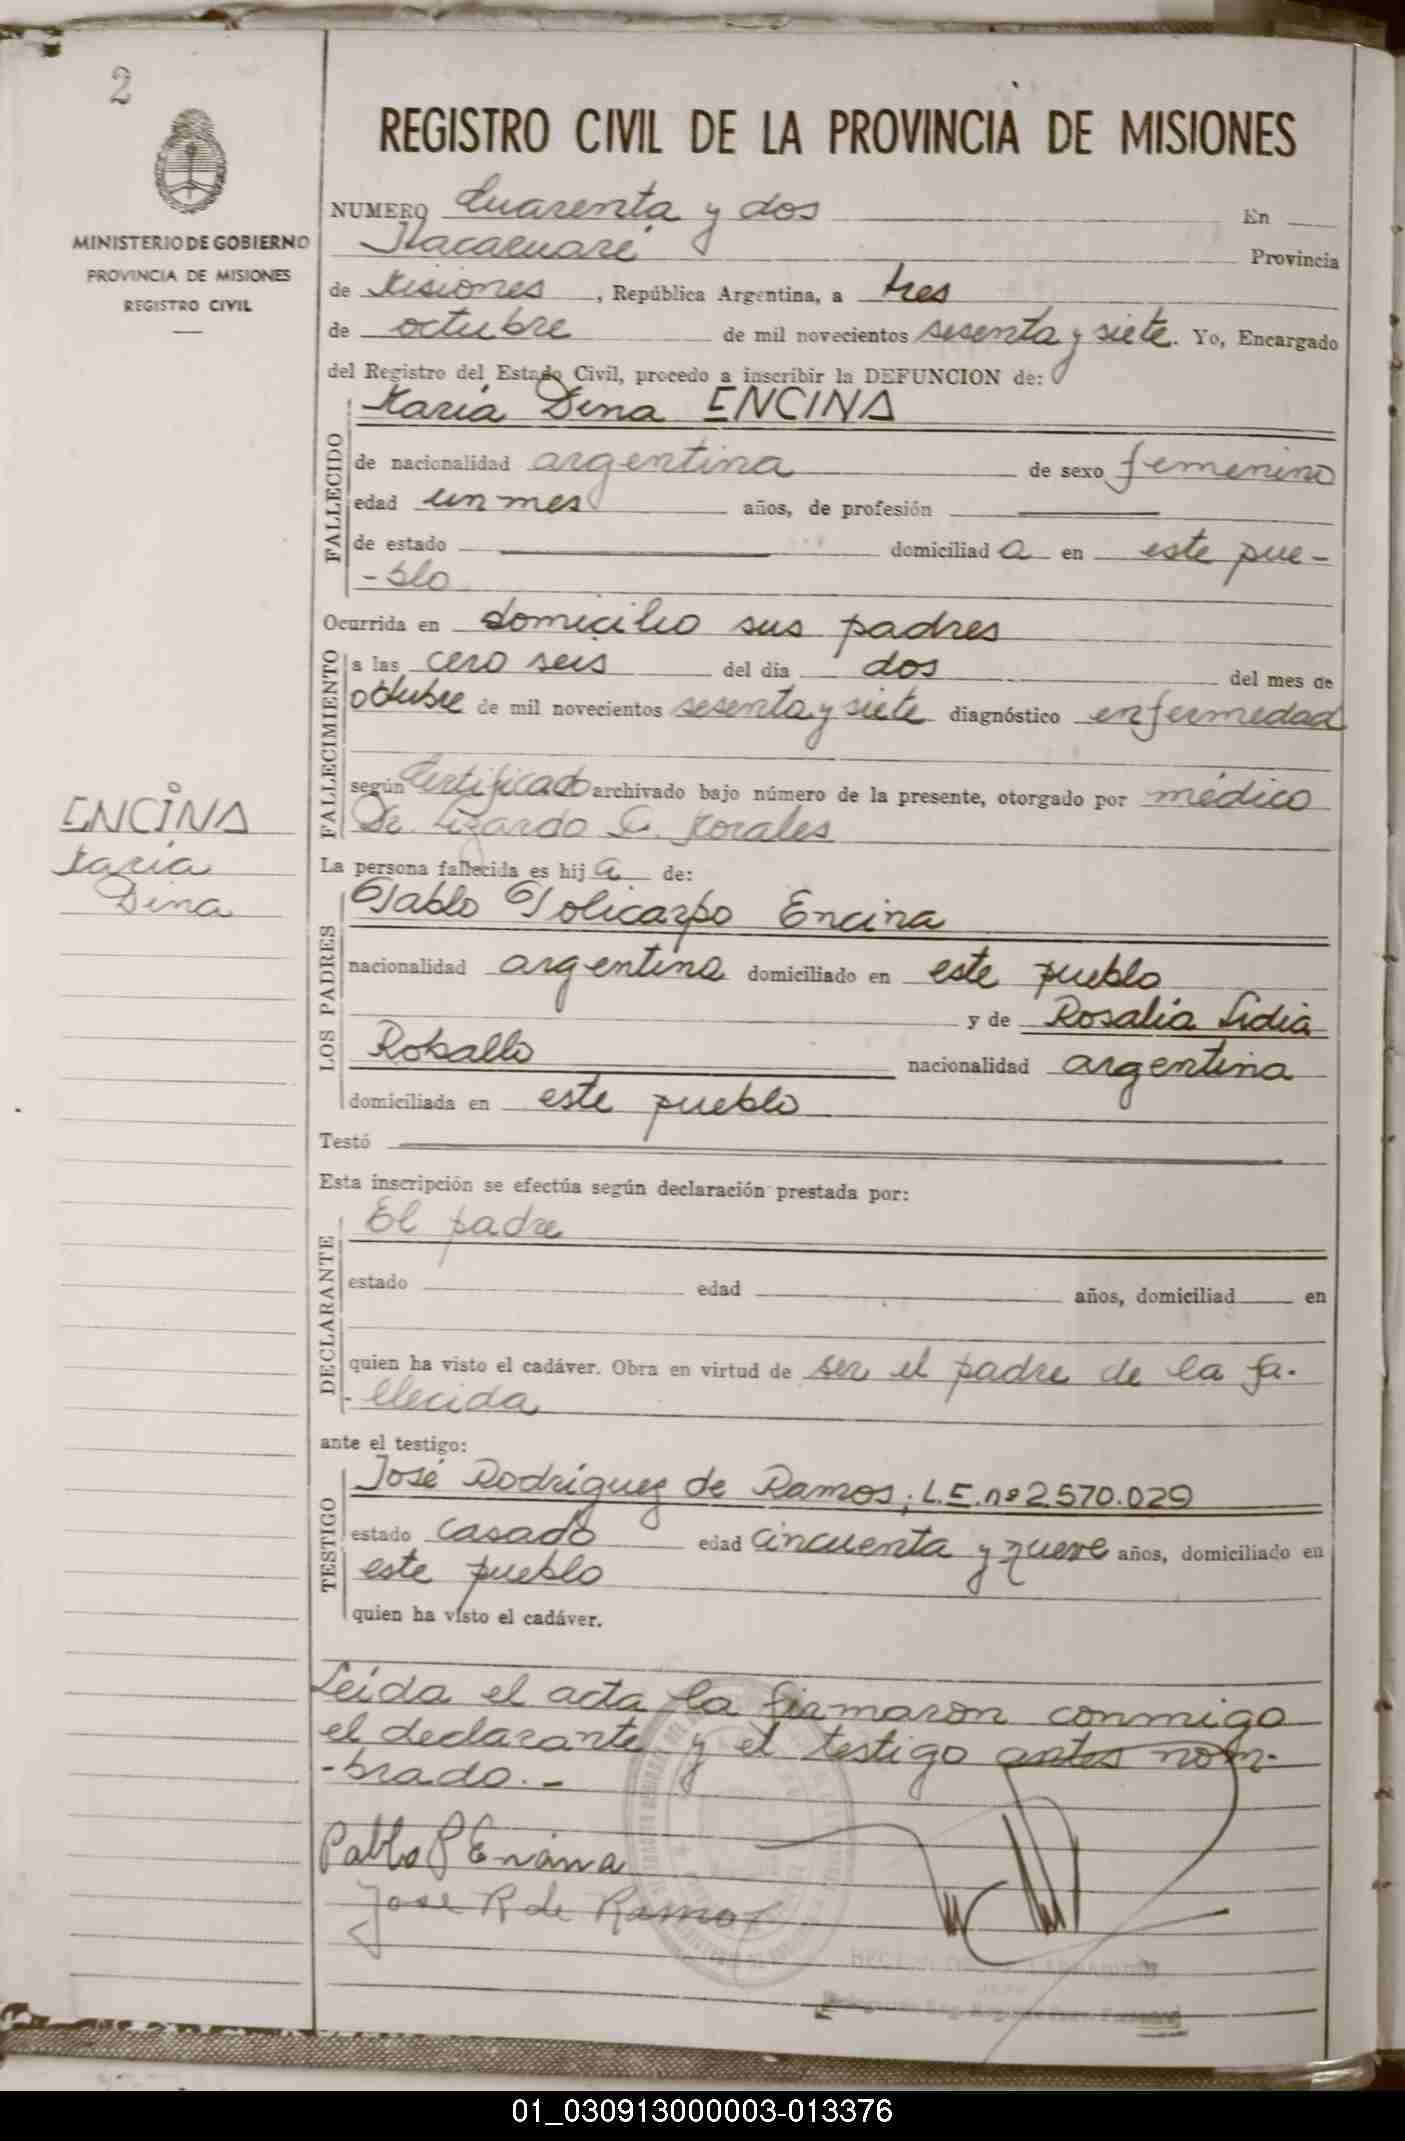 2
REGISTRO CIVIL DE LA PROVINCIA DE MISIONES
MINISTERIO DE GOBIERNO
PROVINCIA DE MISIONES
REGISTRO CIVIL
NUMERO Cuarenta y dos En
Itacaruaré Provincia
de Misiones , República Argentina, a tres
de octubre de mil novecientos sesenta y siete. Yo, Encargado
del Registro del Estado Civil, procedo a inscribir la DEFUNCION de:
FALLECIDO
María Dina ENCINA
de nacionalidad argentina de sexo femenino
edad un mes años, de profesión
de estado domiciliad a en este pue-
-blo
Ocurrida en domicilio sus padres
FALLECIMIENTO
a las cero seis del día dos del mes de
octubre de mil novecientos sesenta y siete diagnóstico enfermedad
según Certificado archivado bajo número de la presente, otorgado por médico
Dr. Lizardo Morales
ENCINA
María
Dina
La persona fallecida es hij a de:
LOS PADRES
Pablo Policarpo Encina
nacionalidad argentina domiciliado en este pueblo
y de Rosalia Lidia
Roballo nacionalidad argentina
domiciliada en este pueblo
Testó
Esta inscripción se efectúa según declaración prestada por:
DECLARANTE
El padre
estado edad años, domiciliad en
quien ha visto el cadáver. Obra en virtud de ser el padre de la fa-
-llecida
ante el testigo:
TESTIGO
José Rodríguez de Ramos; L.E. nº 2.570.029
estado casado edad cincuenta y nueve años, domiciliado en
este pueblo
quien ha visto el cadáver.
Leída el acta la firmaron conmigo
el declarante y el testigo antes nom-
-brado.-
Pablo P Encina
Jose R de Ramos
01_030913000003-013376